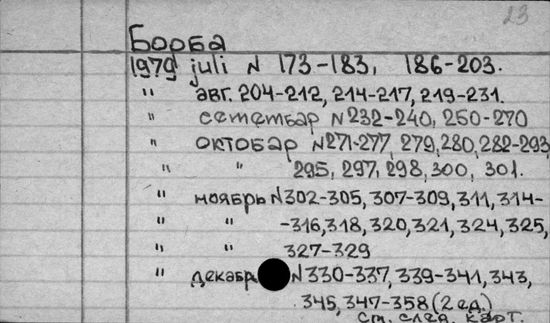 23
Борба
1979 juli N 173-183, 186-203.
" авг. 204-212, 214-217, 219-231.
" сетембар N 232-240, 250-270
" октобар N 271-277, 279, 280, 282-293,
" " 295, 297, 298, 300, 301.
" ноябрь N 302-305, 307-309, 311, 314-
" " -316, 318, 320, 321, 324, 325,
" " 327-329
" декабр N 330-337, 339-341, 343,
345, 347-358 (2 ед.)
См. след. карт.